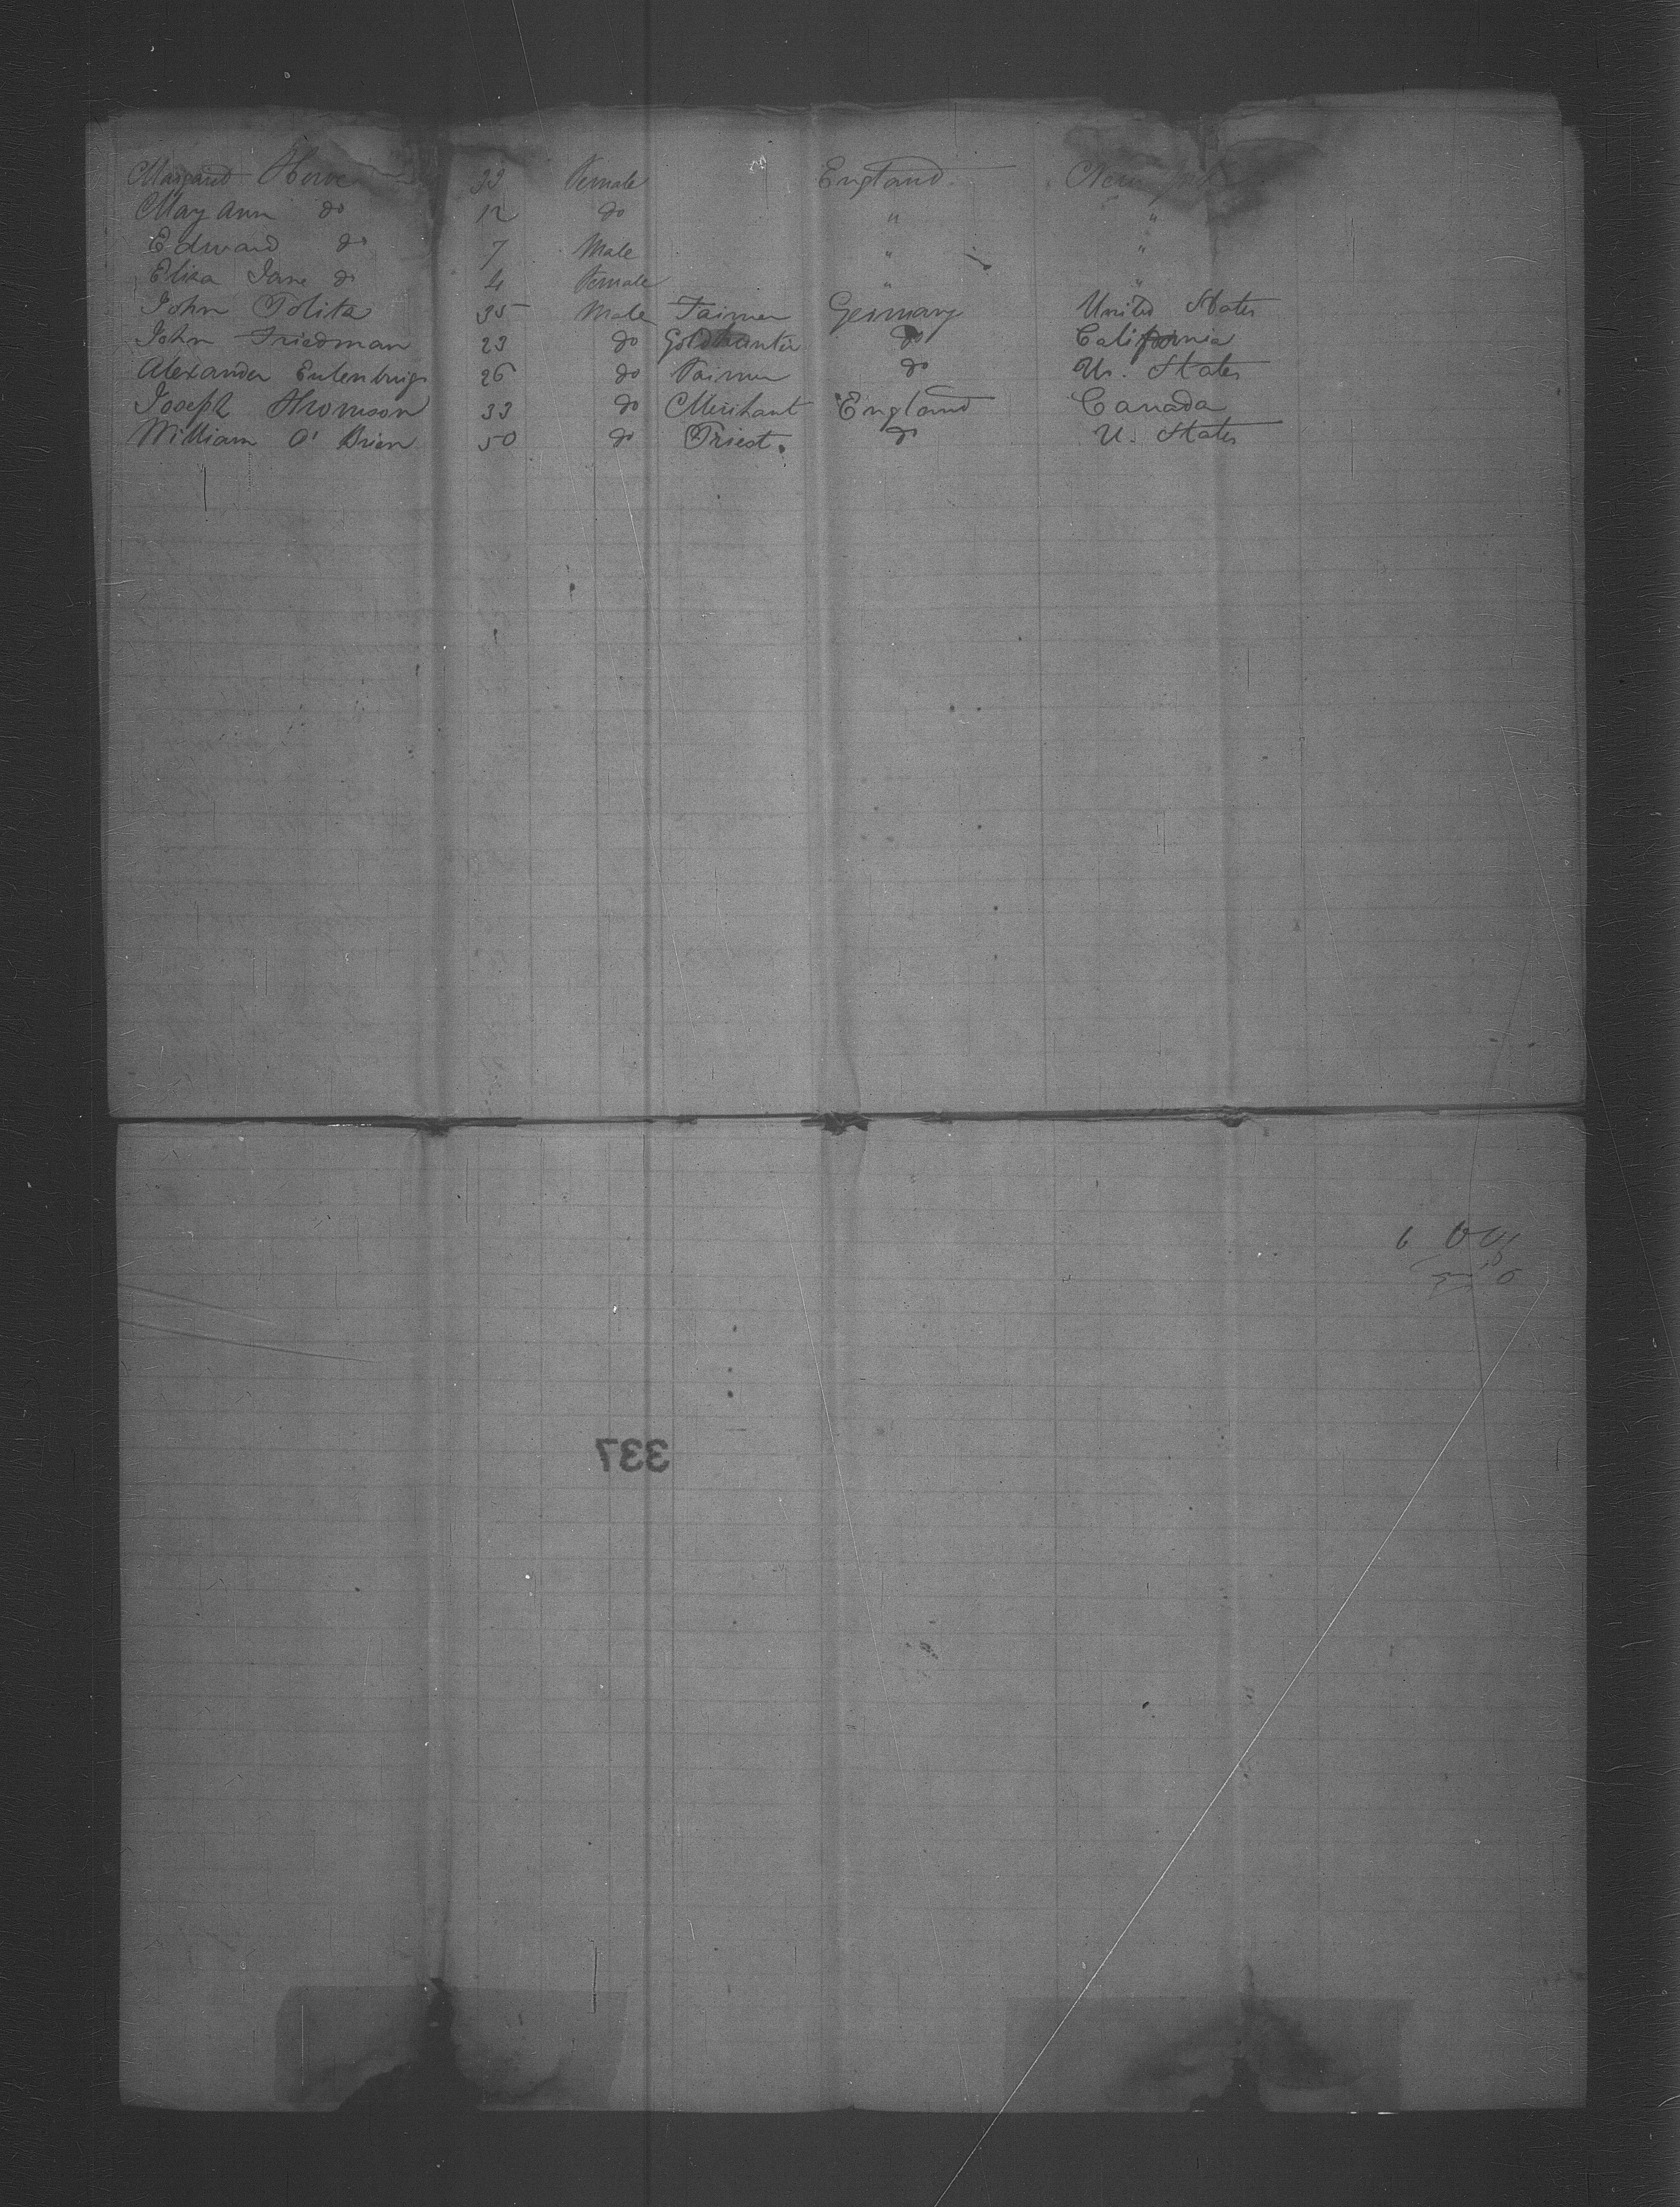 Margaret Howe 33 Female England New York
Mary Ann do 12 do " "
Edward do 7 Male " "
Eliza Jane do 4 Female " "
John Polita 35 Male Farmer Germany United States
John Friedman 23 do Goldhunter do California
Alexander Eulenburg 26 do Farmer do U. States
Joseph Thomson 33 do Merchant England Canada
William O'Brien 50 do Priest. do U. States
337